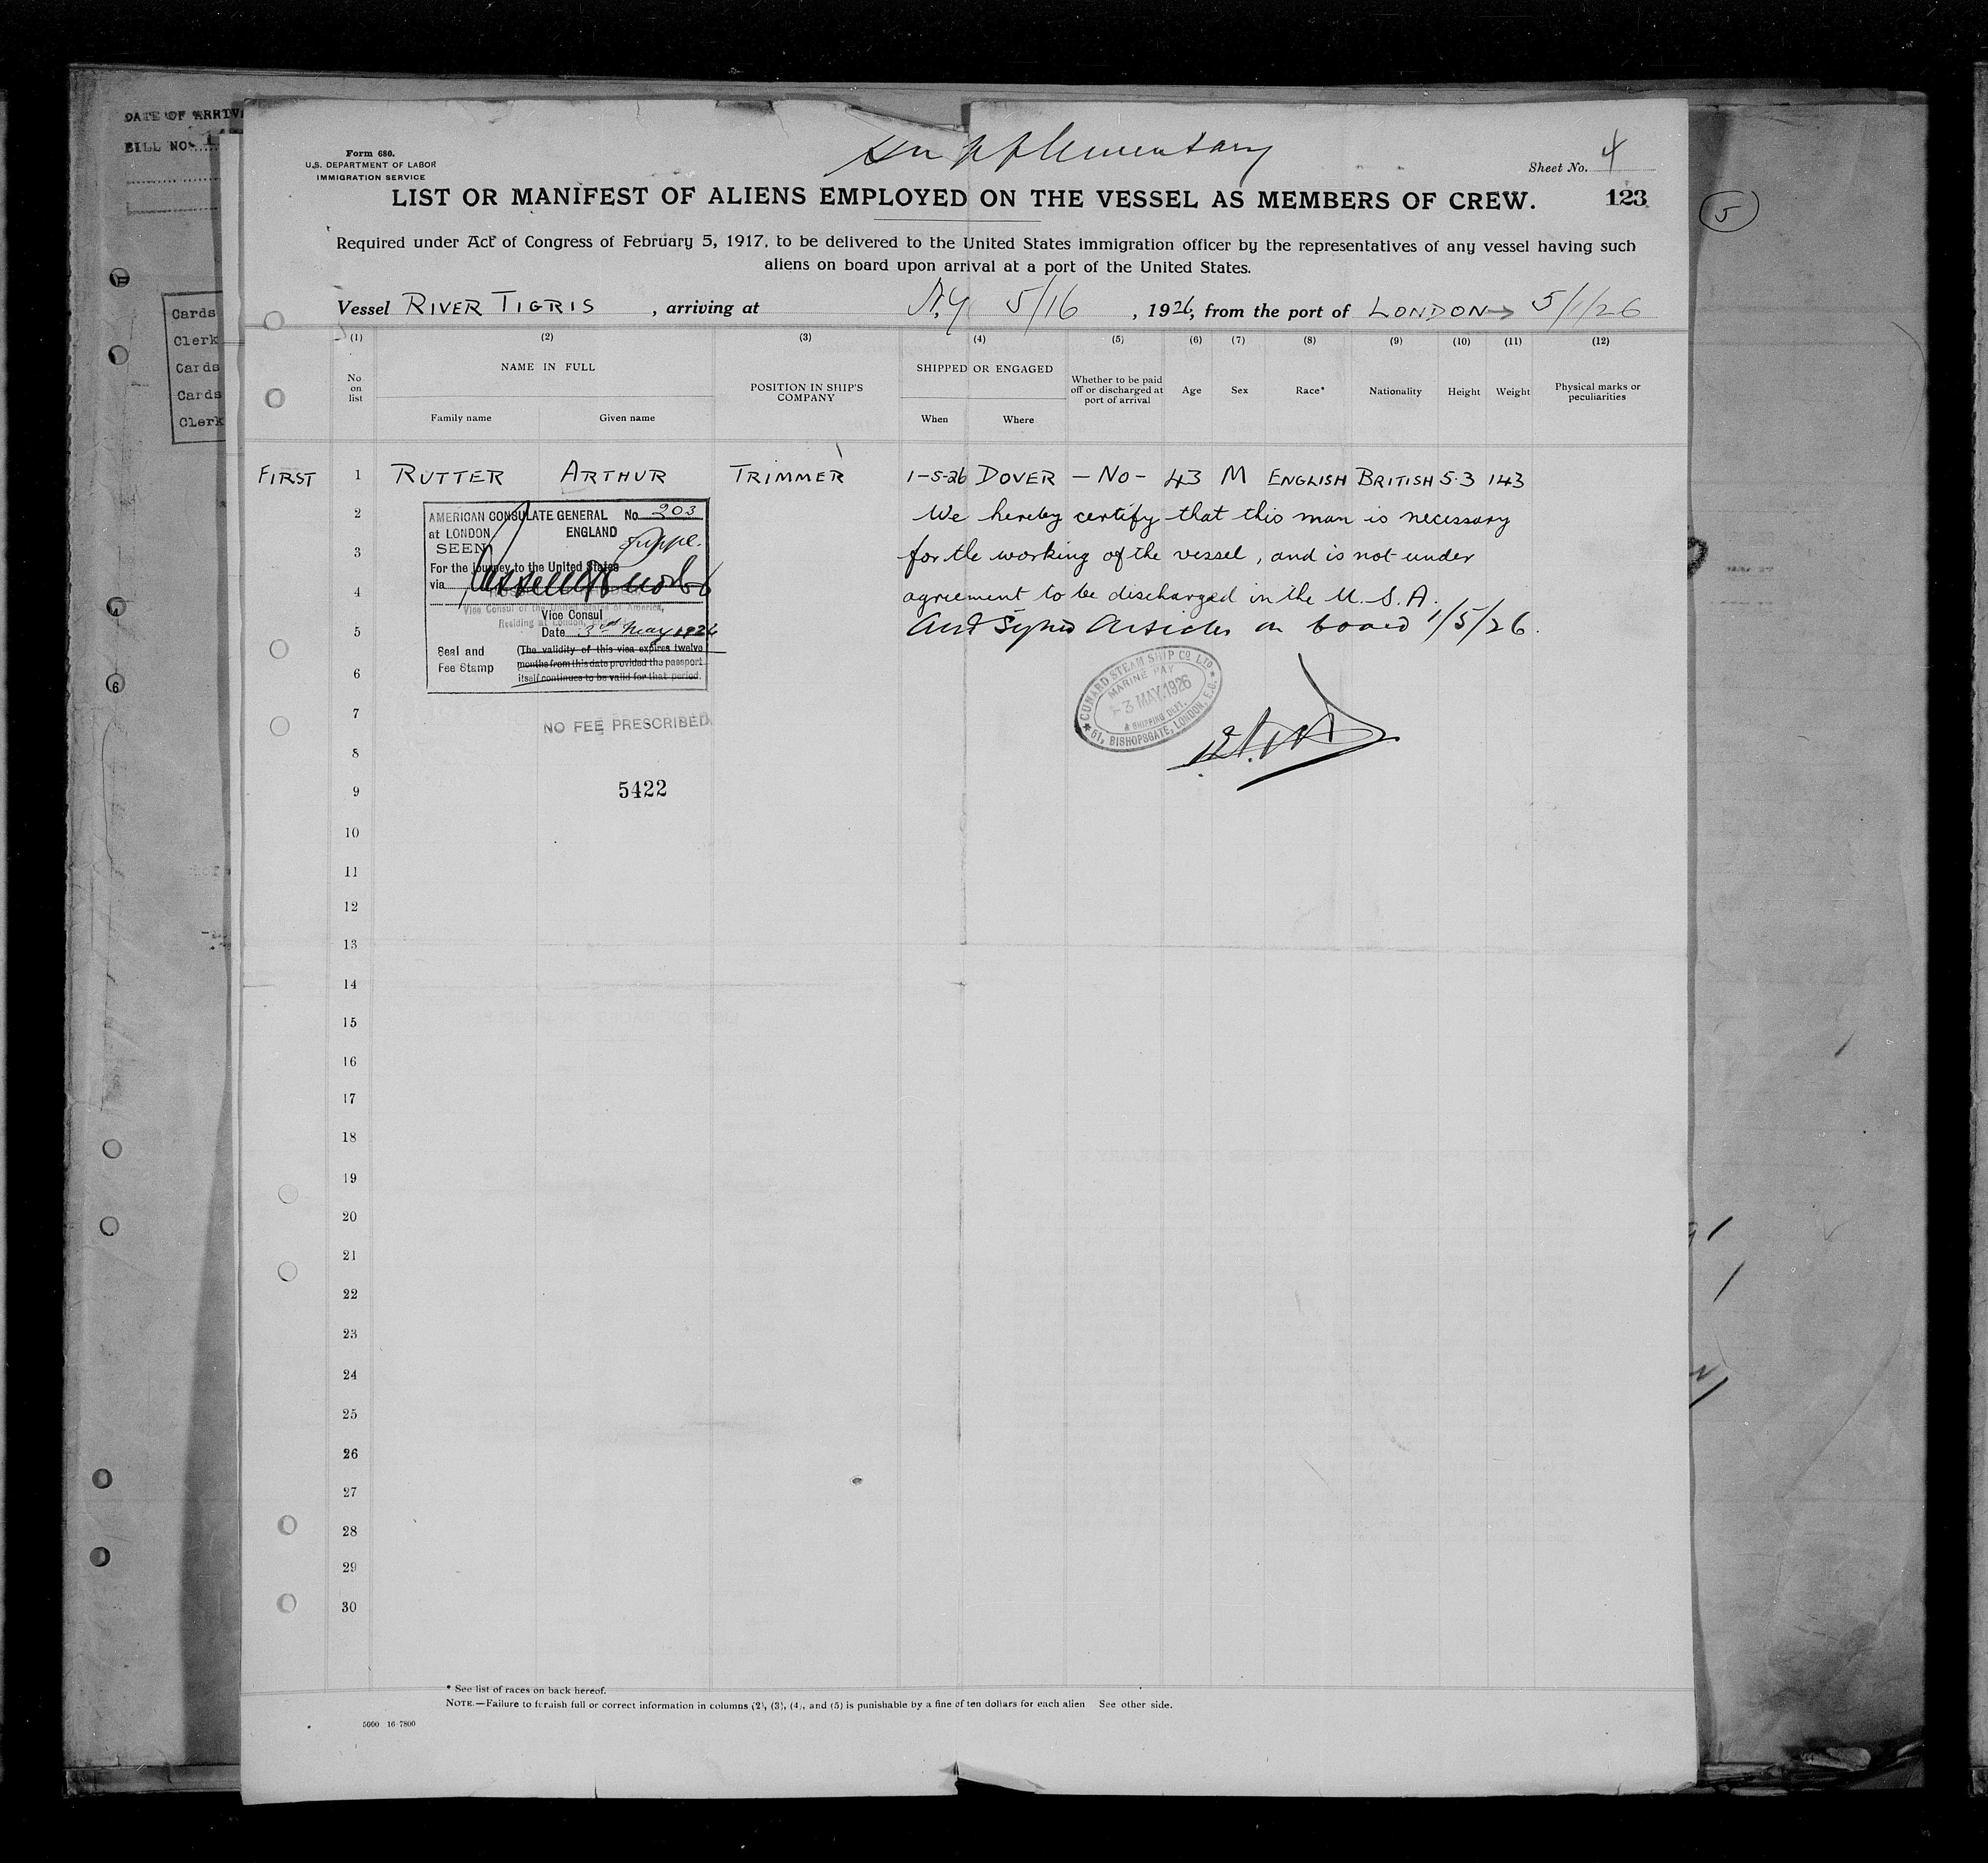 DATE OF ARRIV
BILL NO.
Cards
Clerk
Cards
Cards
Clerk
Supplementary
Form 680.
U.S. DEPARTMENT OF LABOR
IMMIGRATION SERVICE
Sheet No. 4
LIST OR MANIFEST OF ALIENS EMPLOYED ON THE VESSEL AS MEMBERS OF CREW.
123
5
Required under Act of Congress of February 5, 1917, to be delivered to the United States immigration officer by the representatives of any vessel having such
aliens on board upon arrival at a port of the United States.
Vessel RIVER TIGRIS , arriving at N.Y 5/16 , 1926, from the port of LONDON → 5/1/26
(1) (2) (3) (4) (5) (6) (7) (8) (9) (10) (11) (12)
No on list
NAME IN FULL
Family name Given name
POSITION IN SHIP'S COMPANY
SHIPPED OR ENGAGED
When Where
Whether to be paid off or discharged at port of arrival
Age Sex Race* Nationality Height Weight
Physical marks or peculiarities
FIRST 1 RUTTER ARTHUR TRIMMER 1-5-26 DOVER - NO - 43 M ENGLISH BRITISH 5.3 143
2 We hereby certify that this man is necessary
3 for the working of the vessel, and is not under
4 agreement to be discharged in the U.S.A.
5 and signed Articles on board 1/5/26.
6
7
8
9
10
11
12
13
14
15
16
17
18
19
20
21
22
23
24
25
26
27
28
29
30
AMERICAN CONSULATE GENERAL No 203
at LONDON ENGLAND
SEEN Suppl.
For the journey to the United States
via
Vice Consul of the United States of America,
Residing at London,
Vice Consul
Date 3rd May 1926
Seal and
Fee Stamp
(The validity of this visa expires twelve
months from this date provided the passport
itself continues to be valid for that period.
NO FEE PRESCRIBED
5422
CUNARD STEAM SHIP CO LTD
MARINE PAY
3 MAY.1926
& SHIPPING DEPT.
51, BISHOPSGATE, LONDON, E.C.
* See list of races on back hereof.
NOTE.—Failure to furnish full or correct information in columns (2), (3), (4), and (5) is punishable by a fine of ten dollars for each alien See other side.
5000 16-7800